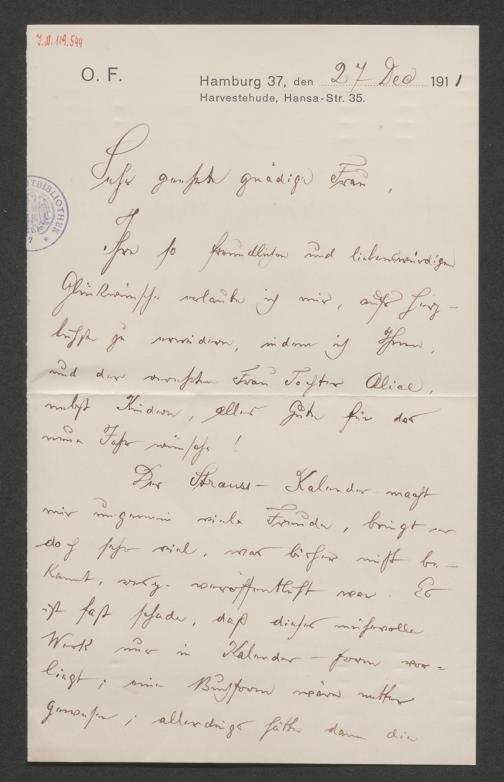 I.N. 119.544
O. F.
Hamburg 37, den 27 Dec 1911
Harvestehude, Hansa-Str. 35.
TBIBLIOTHEK
Sehr geehrte gnädige Frau,
Ihre so freundlichen und liebenswürdigen
Glückwünsche erlaube ich mir, aufs herz-
lichste zu erwidern, indem ich Ihnen,
und der verehrten Frau Tochter Alice,
nebst Kindern, alles Gute für das
neue Jahr wünsche!
Der Strauss-Kalender macht
mir ungemein viele Freude, bringt er
doch sehr viel, was bisher nicht be-
kannt, resp. veröffentlicht war. Es
ist fast schade, daß dieses mühevolle
Werk nur in Kalender-form vor=
liegt; eine Buchform wäre netter
gewesen; allerdings hätte dann die